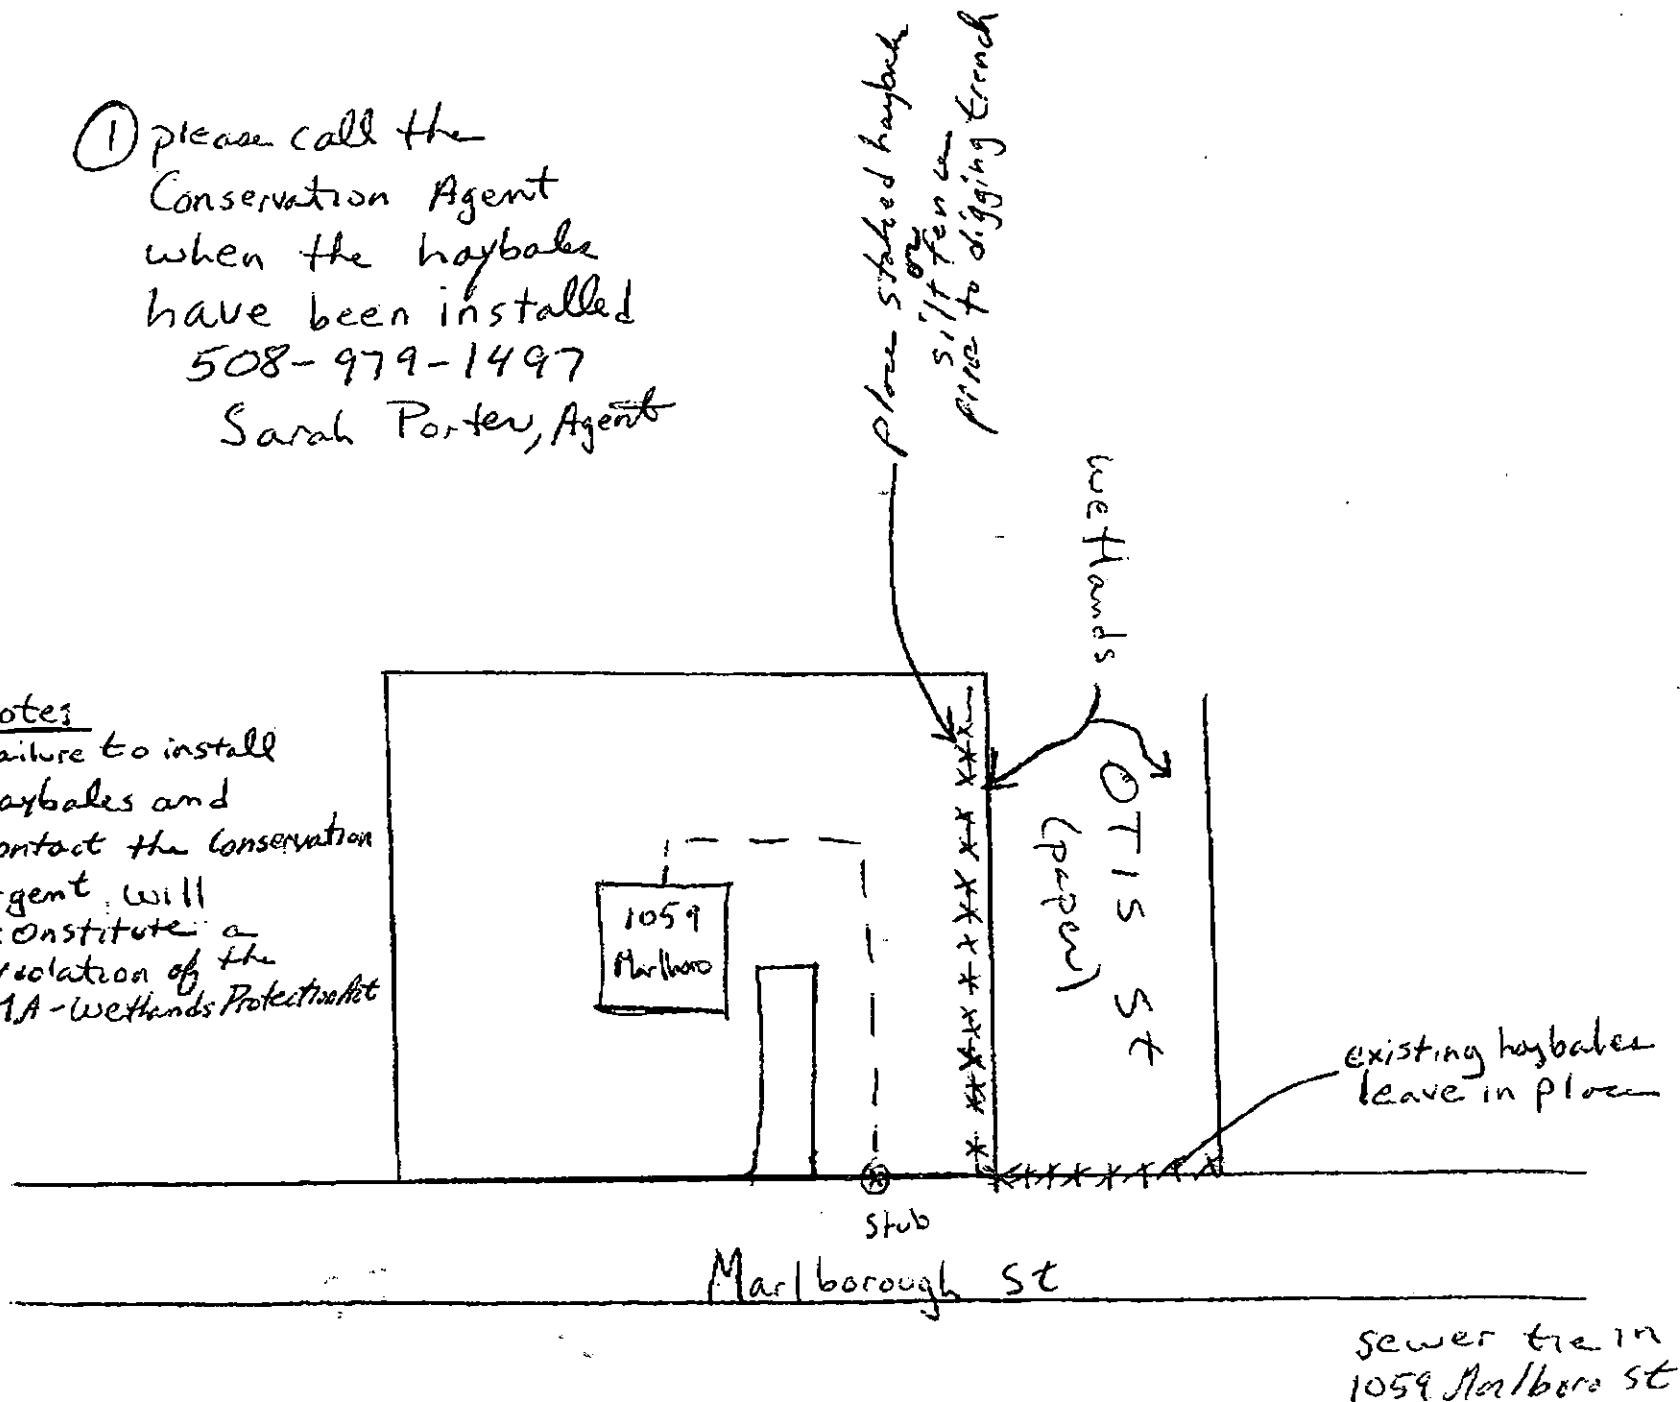 ① please call the
Conservation Agent
when the haybales
have been installed
508-979-1497
Sarah Porter, Agent
place staked haybales
or
silt fence
prior to digging trench
wetlands
otes
ailure to install
aybales and
ontact the Conservation
gent will
constitute a
violation of the
MA-Wetlands Protection Act
1059
Marlboro
OTIS St
(paper)
existing haybales
leave in place
stub
Marlborough St
sewer tie in
1059 Marlboro St